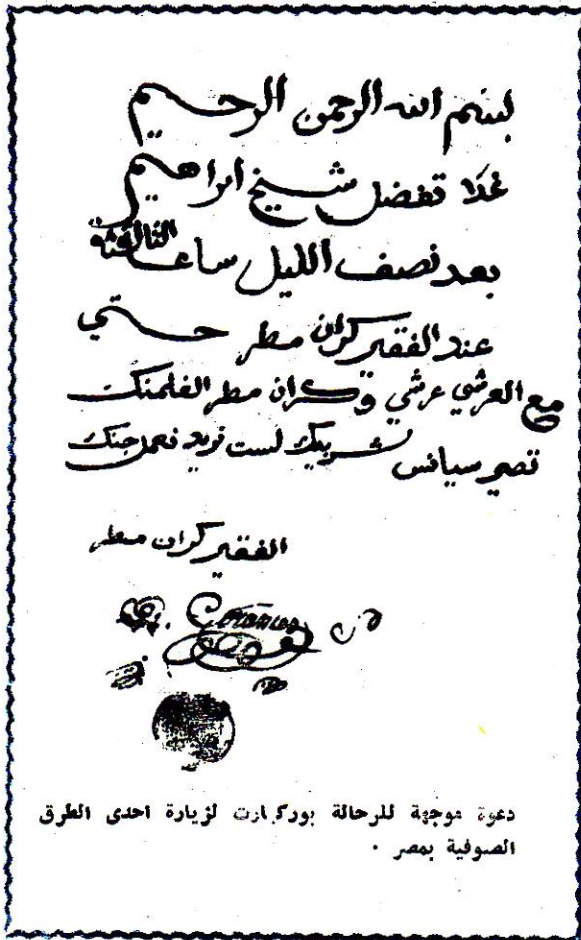 بسم الله الرحمن الرحيم
غدا تفضل شيخ ابراهيم
بعد نصف الليل ساعة الثالثة
عند الفقير كران مطر حتي
مع العرشي عرشي وكران مطر الفلمنك
تصير سيانس شريك لست نريد نعمل جنك
الفقير كران مطر
دعوة موجهة للرحالة بوركهارت لزيارة احدى الطرق
الصوفية بمصر .